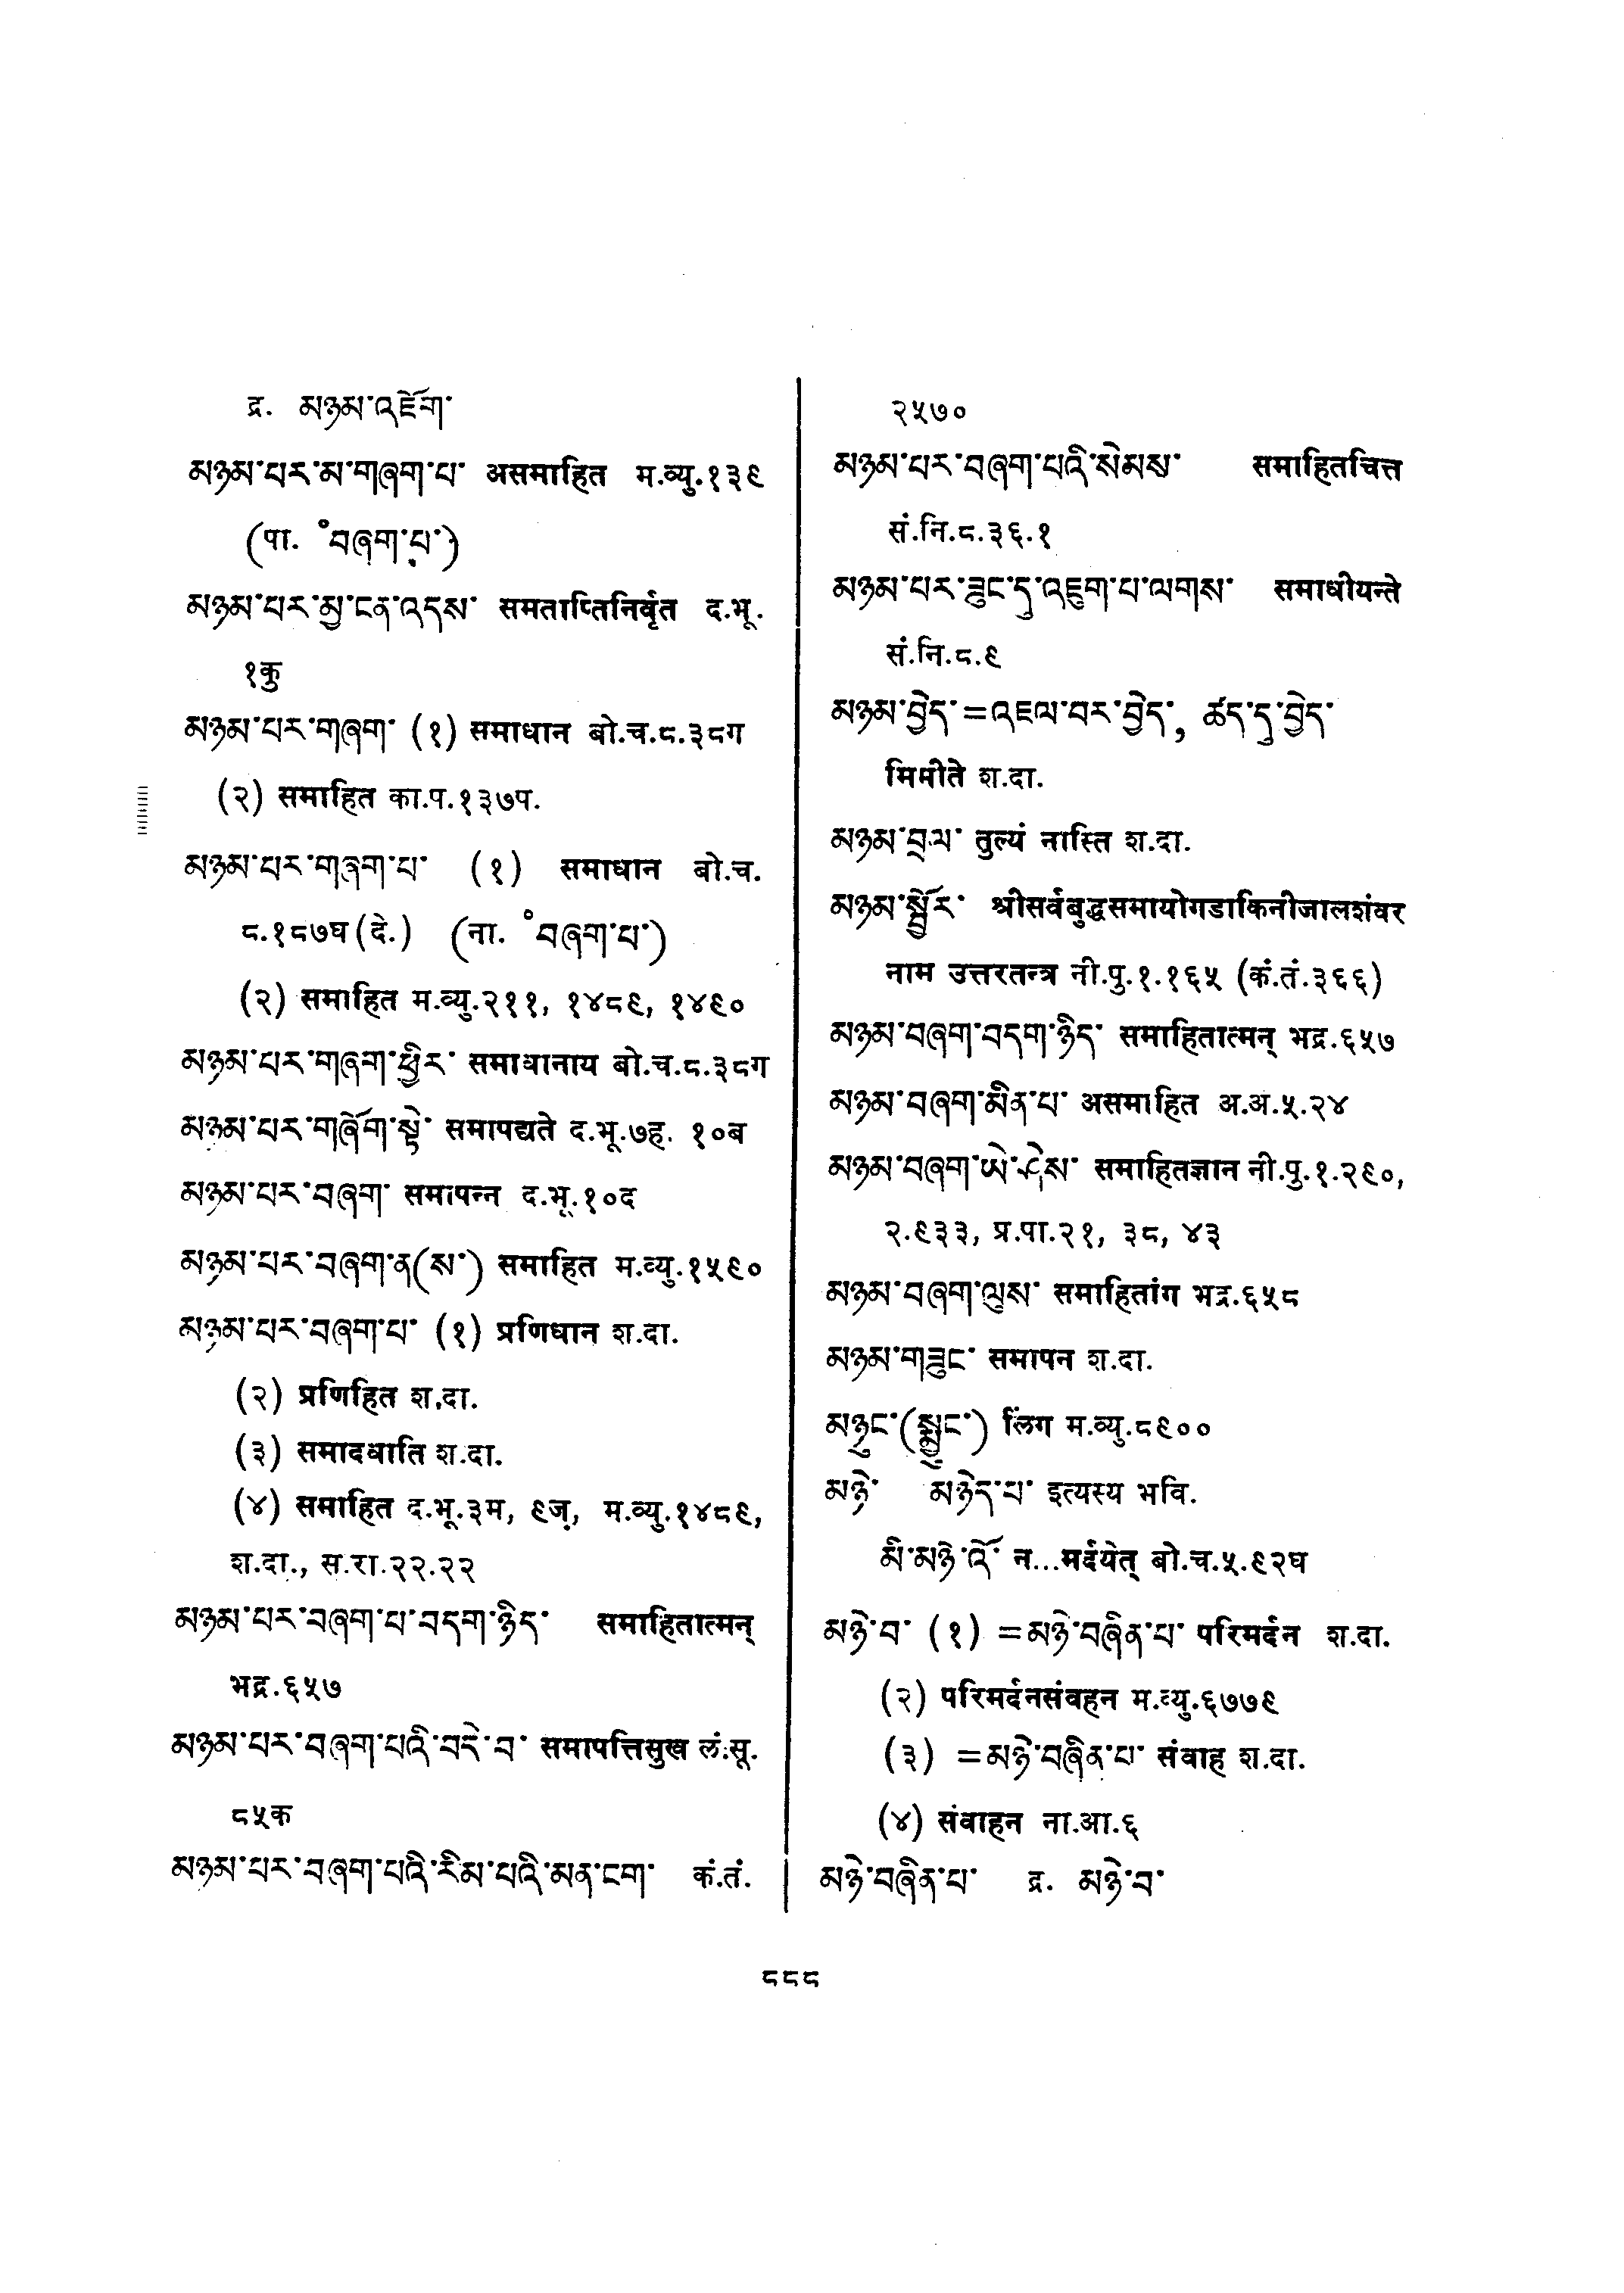 द्र. མཉམ་འཇོག་
མཉམ་པར་མ་གཞག་པ་ असमाहित म.व्यु.१३९
(पा. ॰བཞག་པ་)
མཉམ་པར་མྱ་ངན་འདས་ समताप्तिनिर्वृत द.भू.
१कु
མཉམ་པར་གཞག་ (१) समाधान बो.च.८.३८ग
(२) समाहित का.प.१३७प.
མཉམ་པར་གཞག་པ་ (१) समाधान बो.च.
८.१८७घ(दे.) (ना. ॰བཞག་པ་)
(२) समाहित म.व्यु.२११, १४८९, १४९०
མཉམ་པར་གཞག་ཕྱིར་ समाधानाय बो.च.८.३८ग
མཉམ་པར་གཞོག་སྟེ་ समापद्यते द.भू.७ह. १०ब
མཉམ་པར་བཞག་ समापन्न द.भू.१०द
མཉམ་པར་བཞག་ན(ས་) समाहित म.व्यु.१५९०
མཉམ་པར་བཞག་པ་ (१) प्रणिधान श.दा.
(२) प्रणिहित श.दा.
(३) समादधाति श.दा.
(४) समाहित द.भू.३म, ९ज्, म.व्यु.१४८९,
श.दा., स.रा.२२.२२
མཉམ་པར་བཞག་པ་བདག་ཉིད་ समाहितात्मन्
भद्र.६५७
མཉམ་པར་བཞག་པའི་བདེ་བ་ समापत्तिसुख लं.सू.
८५क
མཉམ་པར་བཞག་པའི་རིམ་པའི་མན་ངག་ कं.तं.
२५७०
མཉམ་པར་བཞག་པའི་སེམས་ समाहितचित्त
सं.नि.८.३६.१
མཉམ་པར་ཟུང་དུ་འཇུག་པ་ལགས་ समाधीयन्ते
सं.नि.८.९
མཉམ་བྱེད་=འཇལ་བར་བྱེད་, ཚད་དུ་བྱེད་
मिमीते श.दा.
མཉམ་བྲལ་ तुल्यं नास्ति श.दा.
མཉམ་སྦྱོར་ श्रीसर्वबुद्धसमायोगडाकिनीजालशंवर
नाम उत्तरतन्त्र नी.पु.१.१६५ (कं.तं.३६६)
མཉམ་བཞག་བདག་ཉིད་ समाहितात्मन् भद्र.६५७
མཉམ་བཞག་མིན་པ་ असमाहित अ.अ.५.२४
མཉམ་བཞག་ཡེ་ཤེས་ समाहितज्ञान नी.पु.१.२९०,
२.९३३, प्र.पा.२१, ३८, ४३
མཉམ་བཞག་ལུས་ समाहितांग भद्र.६५८
མཉམ་གཟུང་ समापन श.दा.
མཉུང་(སྨྱུང་) लिंग म.व्यु.८९००
མཉེ་ མཉེད་པ་ इत्यस्य भवि.
མི་མཉེ་འོ་ न...मर्दयेत् बो.च.५.९२घ
མཉེ་བ་ (१) =མཉེ་བཞིན་པ་ परिमर्दन श.दा.
(२) परिमर्दनसंवहन म.व्यु.६७७९
(३) =མཉེ་བཞིན་པ་ संवाह श.दा.
(४) संवाहन ना.आ.६
མཉེ་བཞིན་པ་ द्र. མཉེ་བ་
८८८